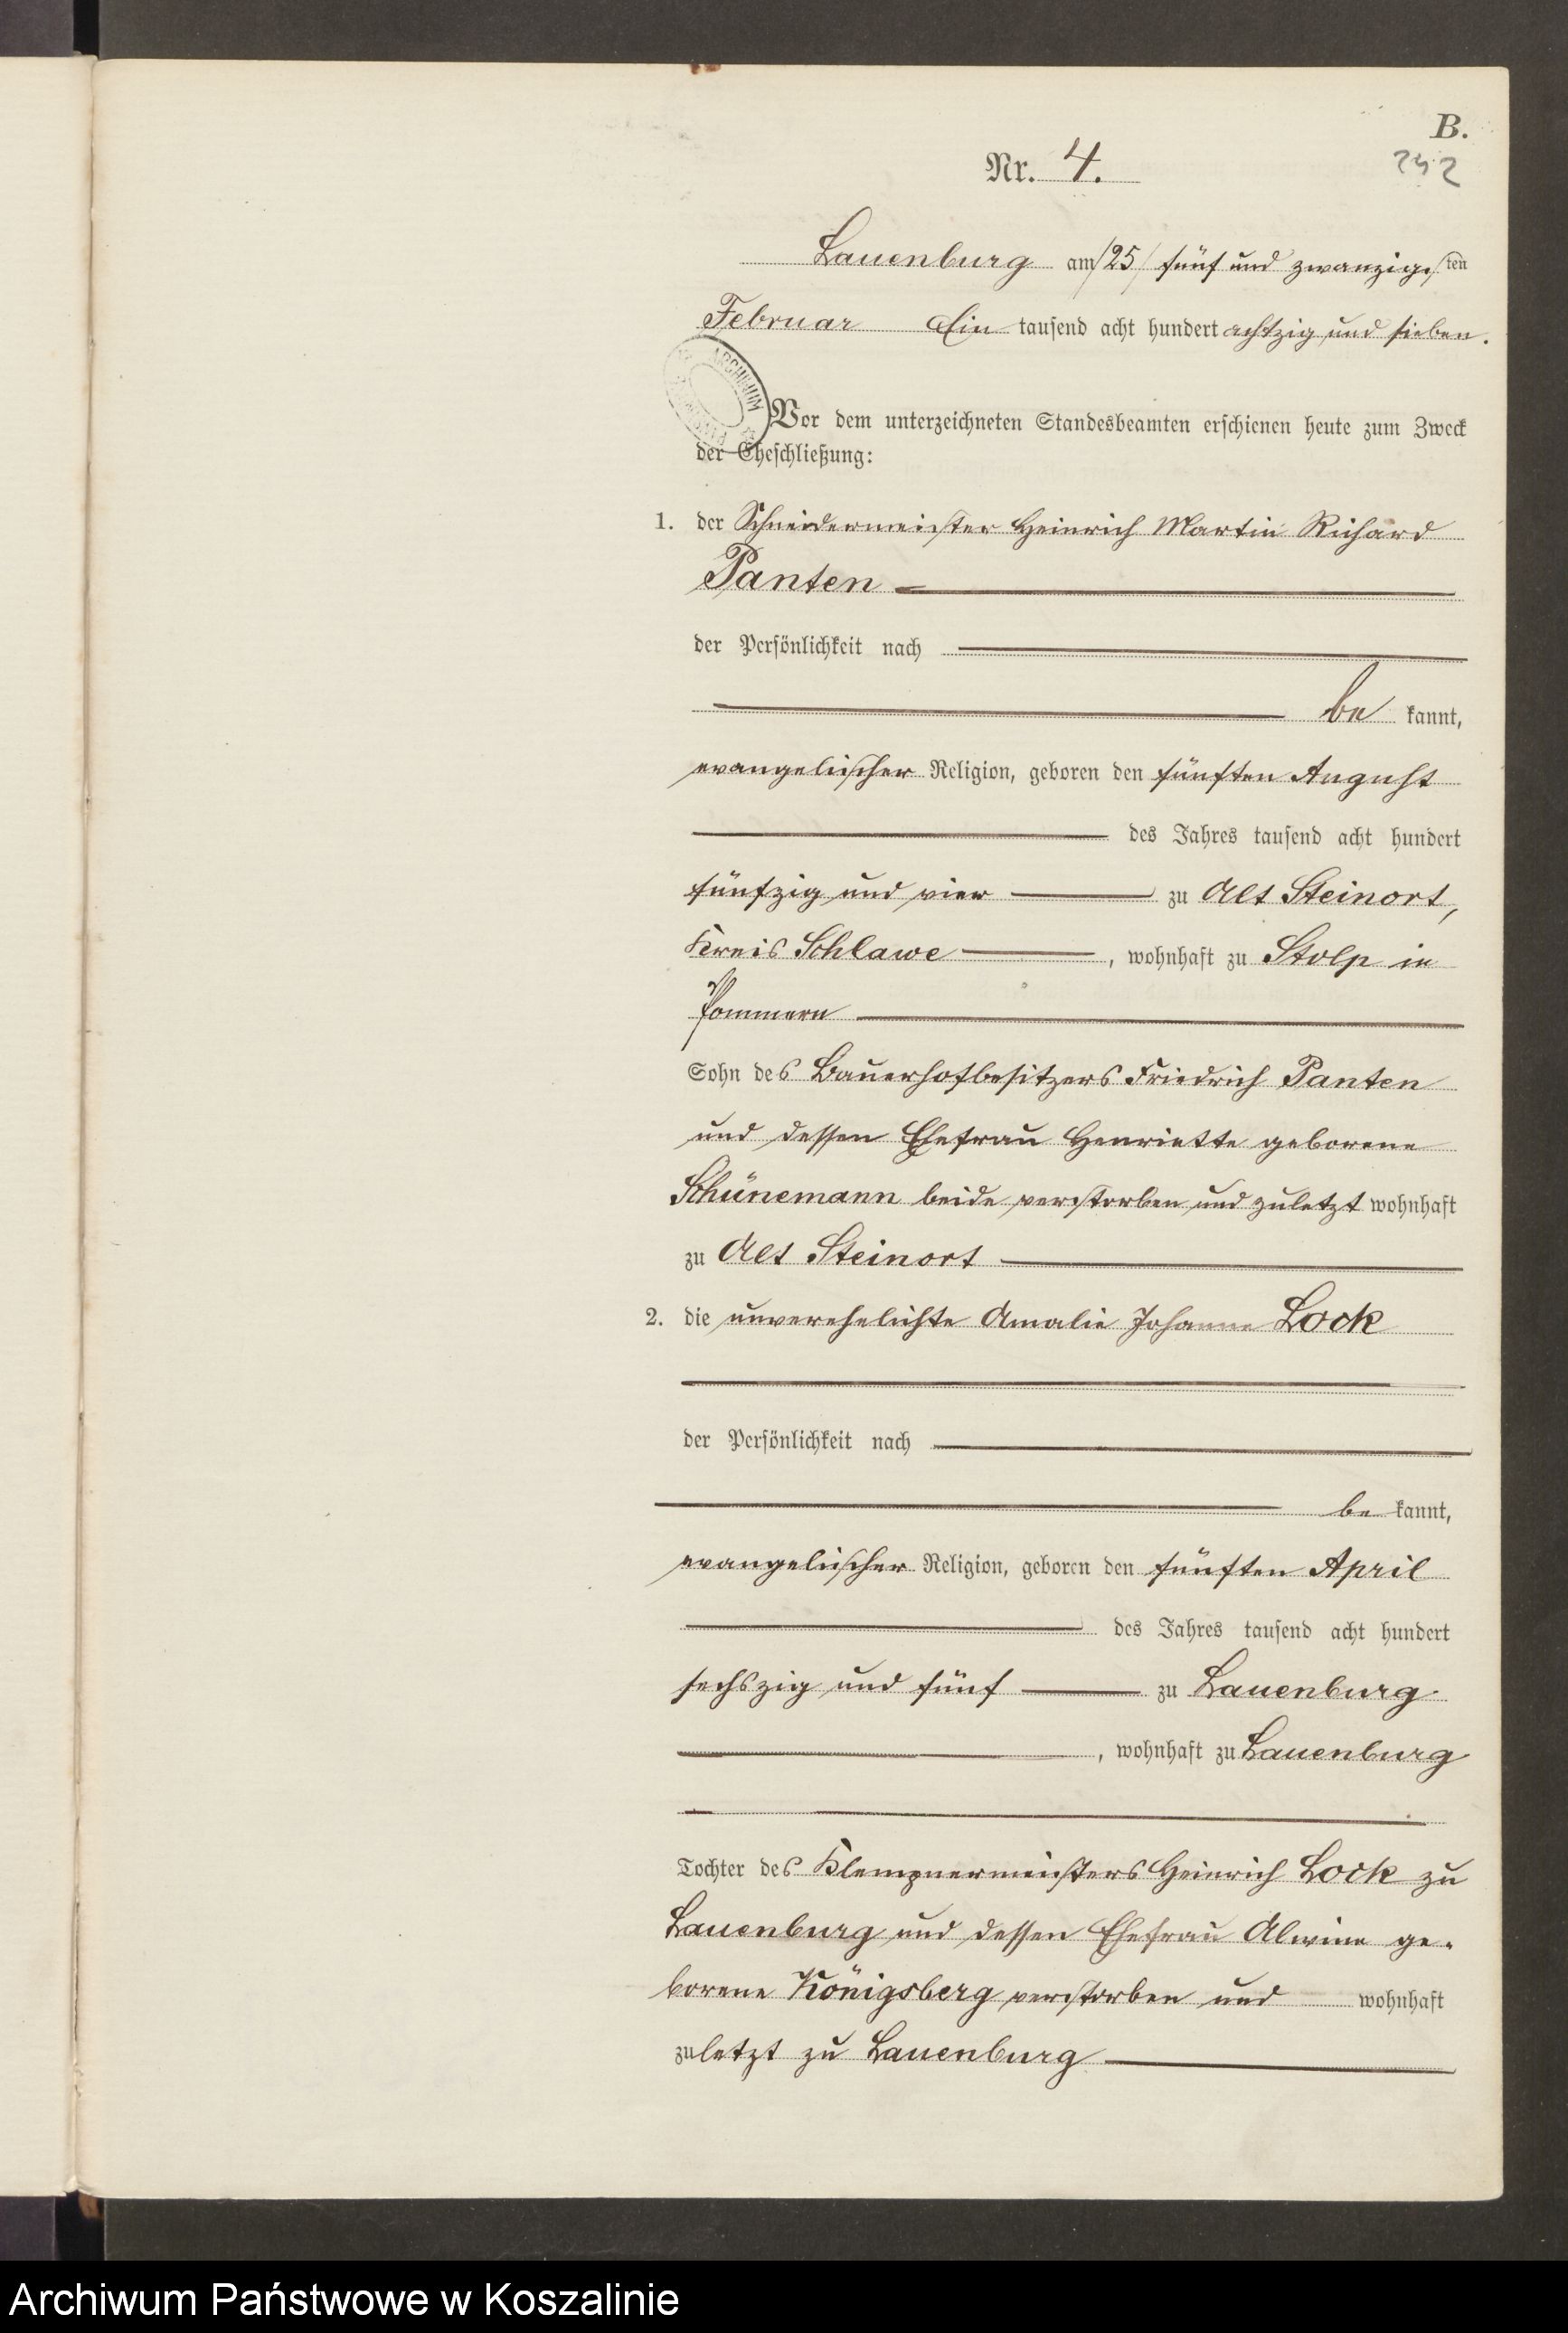 B.
Nr. 4.
252
Lauenburg am /25/ fünf und zwanzigsten
Februar Ein tausend acht hundert achtzig und sieben.
ARCHIWUM
Vor dem unterzeichneten Standesbeamten erschienen heute zum Zweck
der Eheschließung:
1. der Schneidermeister Heinrich Martin Richard
Panten
der Persönlichkeit nach
be kannt,
evangelischer Religion, geboren den fünften August
des Jahres tausend acht hundert
fünfzig und vier zu Alt Steinort,
Kreis Schlawe, wohnhaft zu Stolp in
Pommern
Sohn des Bauerhofbesitzers Friedrich Panten
und dessen Ehefrau Henriette geborene
Schünemann beide verstorben und zuletzt wohnhaft
zu Alt Steinort
2. die unverehelichte Amalie Johanne Lock
der Persönlichkeit nach
be kannt,
evangelischer Religion, geboren den fünften April
des Jahres tausend acht hundert
sechszig und fünf zu Lauenburg
, wohnhaft zu Lauenburg
Tochter des Klempnermeisters Heinrich Lock zu
Lauenburg und dessen Ehefrau Alwine ge-
borene Königsberg verstorben und wohnhaft
zuletzt zu Lauenburg
Archiwum Państwowe w Koszalinie